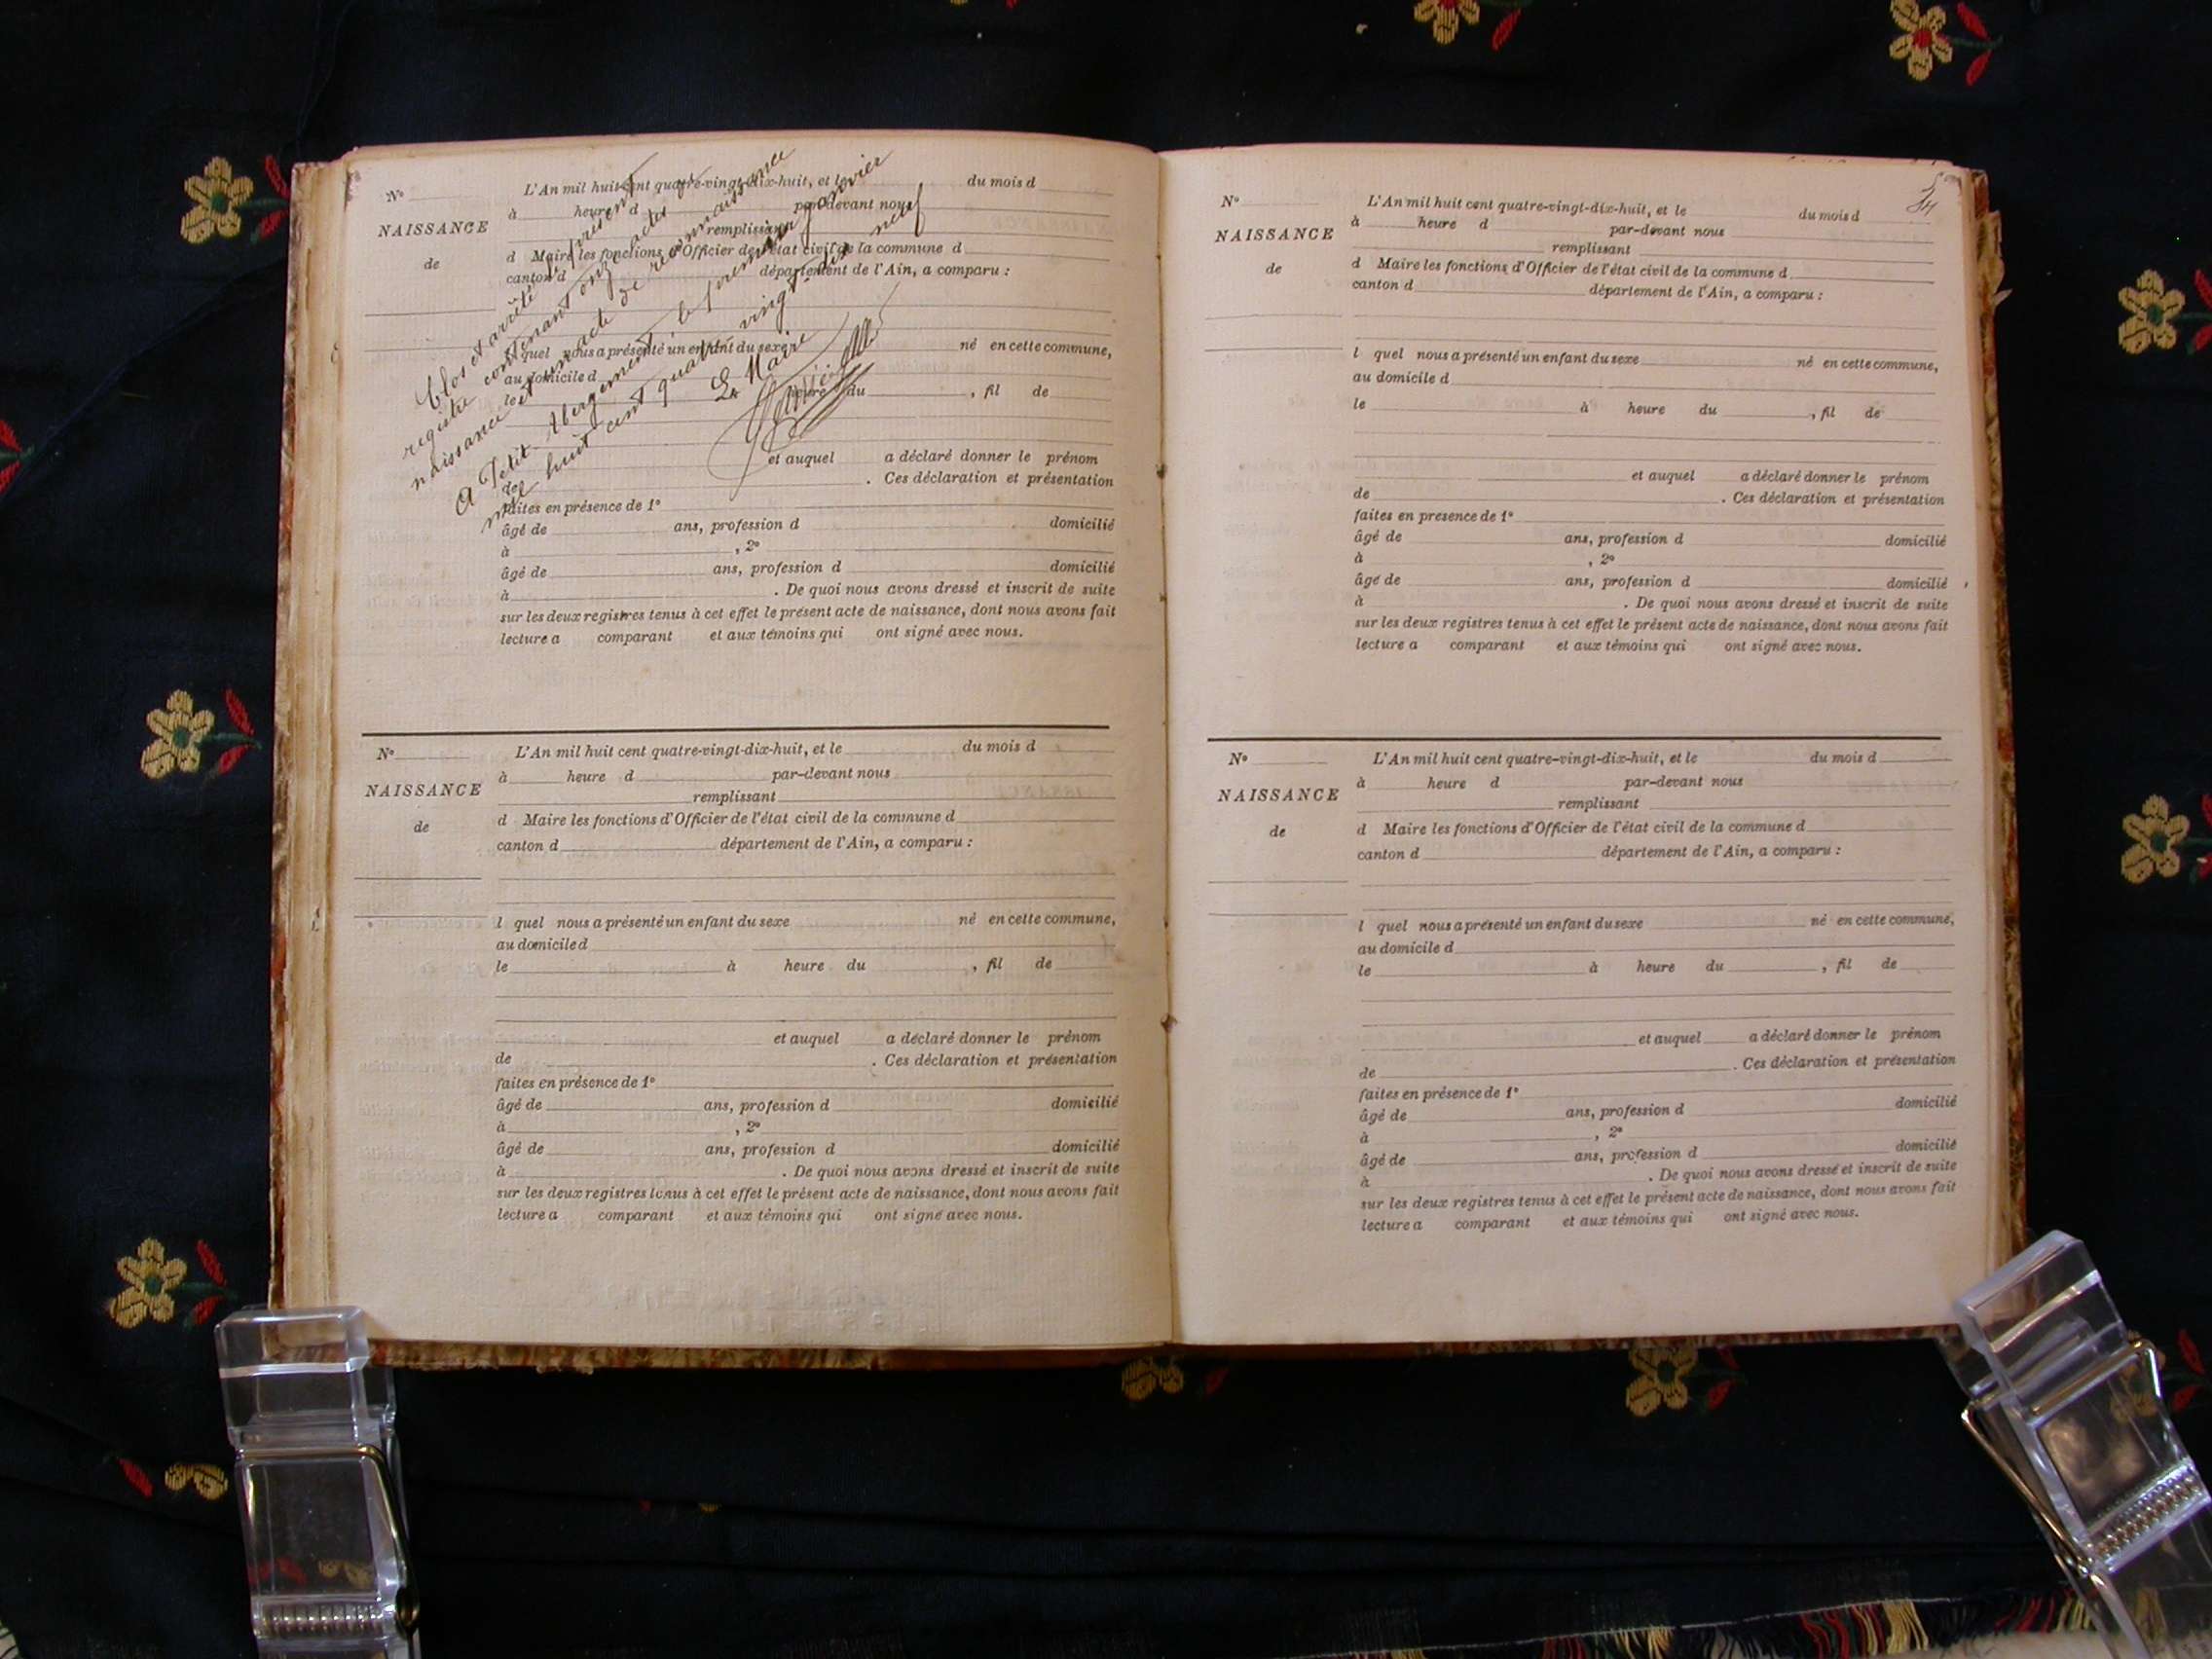 Nº
NAISSANCE
de
L'An mil huit cent quatre-vingt-dix-huit, et le du mois d
à heure d par-devant nous
remplissant
d Maire les fonctions d'Officier de l'état civil de la commune d
canton d département de l'Ain, a comparu :
l quel nous a présenté un enfant du sexe né en cette commune,
au domicile d
le heure du , fil de
et auquel a déclaré donner le prénom
de . Ces déclaration et présentation
faites en présence de 1º
âgé de ans, profession d domicilié
à , 2º
âgé de ans, profession d domicilié
à . De quoi nous avons dressé et inscrit de suite
sur les deux registres tenus à cet effet le présent acte de naissance, dont nous avons fait
lecture a comparant et aux témoins qui ont signé avec nous.
Clos et arrêté le présent
registre contenant onze actes de
naissance et un acte de reconnaissance
A Petit-Abergement, le premier janvier
mil huit cent quatre vingt dix neuf
Le Maire
Nº
NAISSANCE
de
L'An mil huit cent quatre-vingt-dix-huit, et le du mois d
à heure d par-devant nous
remplissant
d Maire les fonctions d'Officier de l'état civil de la commune d
canton d département de l'Ain, a comparu :
l quel nous a présenté un enfant du sexe né en cette commune,
au domicile d
le à heure du , fil de
et auquel a déclaré donner le prénom
de . Ces déclaration et présentation
faites en présence de 1º
âgé de ans, profession d domicilié
à , 2º
âgé de ans, profession d domicilié
à . De quoi nous avons dressé et inscrit de suite
sur les deux registres tenus à cet effet le présent acte de naissance, dont nous avons fait
lecture a comparant et aux témoins qui ont signé avec nous.
Nº
NAISSANCE
de
L'An mil huit cent quatre-vingt-dix-huit, et le du mois d
à heure d par-devant nous
remplissant
d Maire les fonctions d'Officier de l'état civil de la commune d
canton d département de l'Ain, a comparu :
l quel nous a présenté un enfant du sexe né en cette commune,
au domicile d
le à heure du , fil de
et auquel a déclaré donner le prénom
de . Ces déclaration et présentation
faites en presence de 1º
âgé de ans, profession d domicilié
à , 2º
âgé de ans, profession d domicilié
à . De quoi nous avons dressé et inscrit de suite
sur les deux registres tenus à cet effet le présent acte de naissance, dont nous avons fait
lecture a comparant et aux témoins qui ont signé avec nous.
Nº
NAISSANCE
de
L'An mil huit cent quatre-vingt-dix-huit, et le du mois d
à heure d par-devant nous
remplissant
d Maire les fonctions d'Officier de l'état civil de la commune d
canton d département de l'Ain, a comparu :
l quel nous a présenté un enfant du sexe né en cette commune,
au domicile d
le à heure du , fil de
et auquel a déclaré donner le prénom
de . Ces déclaration et présentation
faites en présence de 1º
âgé de ans, profession d domicilié
à , 2º
âgé de ans, profession d domicilié
à . De quoi nous avons dressé et inscrit de suite
sur les deux registres tenus à cet effet le présent acte de naissance, dont nous avons fait
lecture a comparant et aux témoins qui ont signé avec nous.